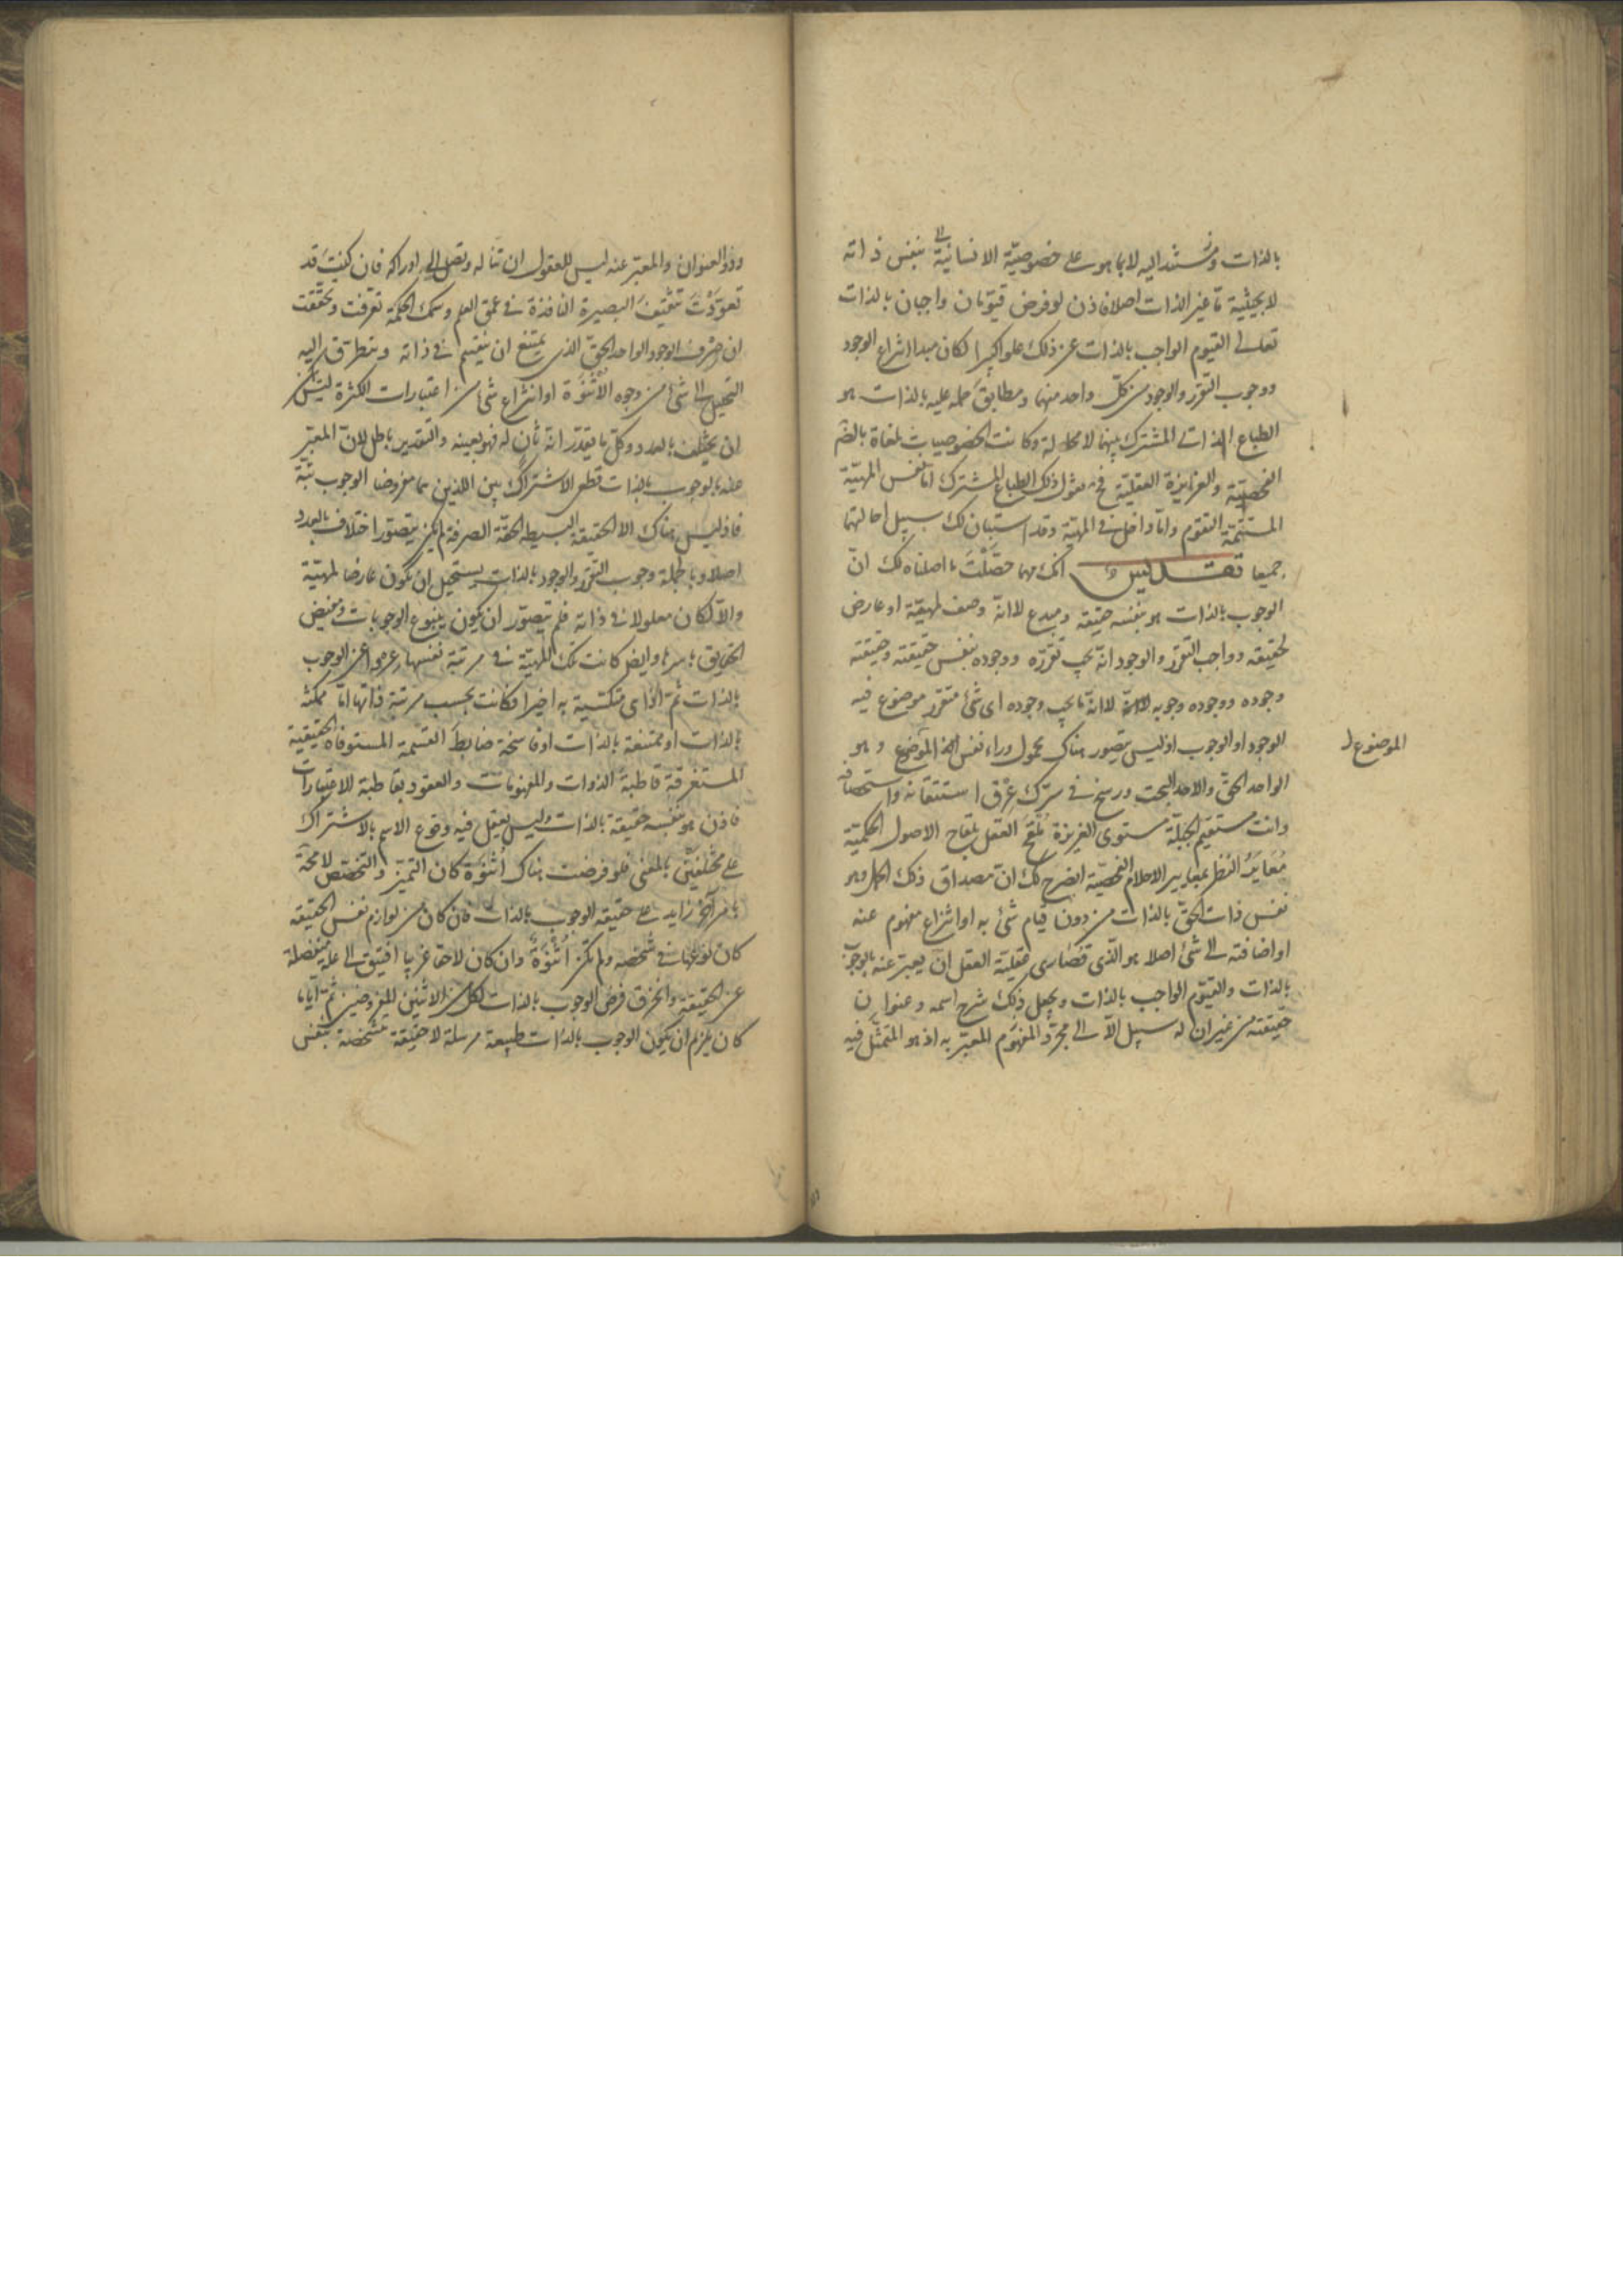 بالذات ومستند اليه لا بما هو على خصوصيّة الانسانيّة بنفس ذاته
لا بحيثية ما غير الذات اصلا فاذن لو فرض قيّومان واجبان بالذات
تعالى القيوم الواجب بالذات عن ذلك علوا كبيرا لكان مبدا انتزاع الوجود
ووجوب التقرر والوجود من كلّ واحد منهما ومطابق حمله عليه بالذات هو
الطباع الذاتى المشترك بينهما لا محالة وكانت الخصوصيات ملغاة بالضر
الفحصيّة والغريزة العقلية فح نقول ذلك الطباع المشترك اما نفس المهيّة
المستتمّة التقوم واما داخل فى المهيّة وقد استبان لك سبيل احالتهما
جميعا انك مهما حصّلت ما اصلناه لك انّ
الوجوب بالذات هو بنفسه حقيقة ومبدع لا انّه وصف لمهيّة او عارض
لحقيقة وواجب التقرر والوجود انه يجب تقرّره ووجوده بنفس حقيقته وحقيقته
وجوده ووجوده وجوبه لا انّه ما يجب وجوده اى شئ متقرر موضوع فيه
الوجود او الوجوب اذ ليس يتصور هناك محمول وراء نفس الموضوع وهو
الموضوع
الواحد الحقّ والاحد البحت ورسخ فى سرّك عرق استيقانه واستحصافه
وانت مستقيم الجبلّة مستوى الغريزة مُلقَح العقل بلقاح الاصول الحكميّة
مُعايَرُ النظر بمعايير الاحلام الفحصيّة انصرح لك ان مصداق ذلك الحمل وهو
نفس ذات الحقّ بالذات من دون قيام شئ به او انتزاع مفهوم عنه
او اضافته الى شئ اصلا هو الذى قصارى عقلية العقل ان يعبر عنه بالوجوب
بالذات والقيّوم الواجب بالذات ويجعل ذلك شرح اسمه وعنوان
حقيقته من غير ان له سبيل الا الى مجرد المفهوم المعبّر به اذ هو المتمثّل فيه
وذو العنوان والمعبّر عنه ليس للعقول ان تناله وتصل الى ادراكه فان كنت قد
تعوّدت تثقيف البصيرة النافذة فى عمق العلم وسمك الحكمة تعرّفت وتحققت
ان صرف الوجود الواحد الحقّ الذى يمتنع ان ينقسم فى ذاته ويتطرّق اليه
التحليل الى شئ من وجوه الاثنوة او انتزاع شئ من اعتبارات الكثرة ليس يمكن
ان يختلف بالعدد وكلّ ما يقدّر انه ثان له فهو بعينه والتقدير باطل لان المعبّر
عنه بالوجوب بالذات قطع الاشتراك بين اللذين هما مفروضا الوجوب بتّة
فاذ ليس هناك الا الحقيقة البسيطة الحقّة الصرفة لم يكن يتصور اختلاف بالعدد
اصلا وبالجملة وجوب التقرّر والوجود بالذات يستحيل ان يكون عارضا لمهيّة
والّا لكان معلولا فى ذاته فلم يتصوّر ان يكون ينبوع الوجوبات ومفيض
الحقايق باسرها وايضا كانت تلك المهيّة فى مرتبة نفسها عرواً عن الوجوب
بالذات ثم اذا هى مكتسبة به اخيرا فكانت بحسب مرتبة ذاتها امّا ممكنة
بالذات او ممتنعة بالذات او فاسخة ضابط القسمة المستوفاة الحقيقية
المستغرقة قاطبة الذوات والمفهومات والعقود بقاطبة الاعتبارات
فاذن هو بنفسه حقيقة بالذات وليس يعقل فيه وقوع الاسم بالاشتراك
على مختلفين بالمعنى فلو فرضت هناك اثنوة كان التميّز والتخصّص لا محة
بامر اخر زايد على حقيقة الوجوب بالذات فان كان من لوازم نفس الحقيقة
كان نوعها فى شخصه ولم تكن اثنوة وان كان لاحقا غريبا افتيق الى علة منفصلة
عن الحقيقة وانخرق فرض الوجوب بالذات لكل من الاثنين المفروضين ثمّ ايا ما
كان يلزم ان يكون الوجوب بالذات طبيعة مرسلة لا حقيقة متشخصة بنفس